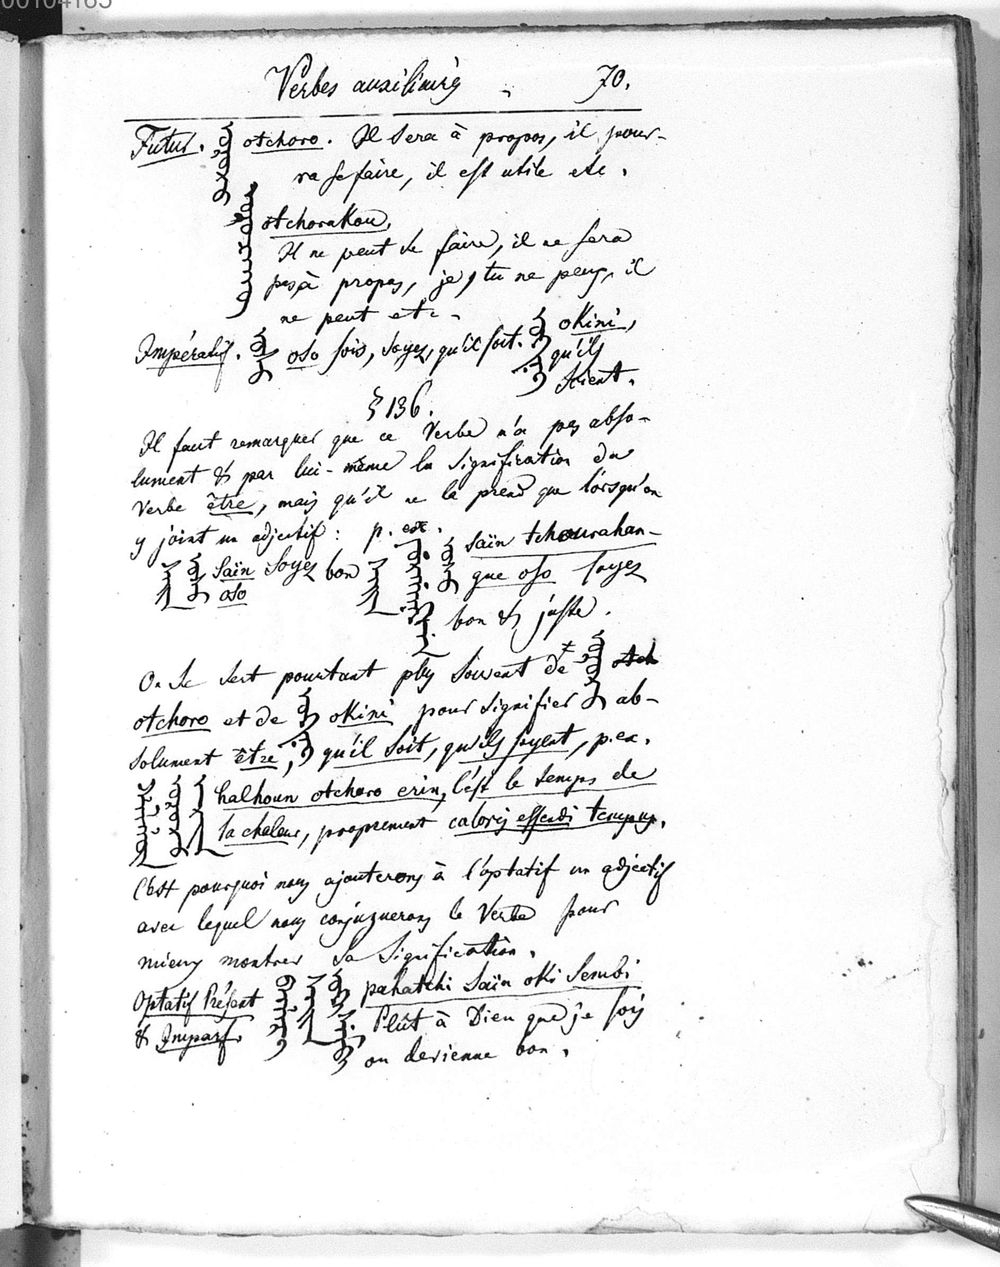 00104165
Verbes auxiliaires . 70.
Futur. ᠣᠵᠣᠷᠣ otchoro. Il Sera à propos, il pour-
ra se faire, il est utile etc.
otchorakou,
Il ne peut se faire, il ne sera
pas à propos, je, tu ne peux, il
ne peut etc.
Impératif. ᠣᠰᠣ oso sois, soyez, qu'il soit. ᠣᡴᡳᠨᡳ okini,
qu'ils
soient.
§ 136.
Il faut remarquer que ce Verbe n'a pas abso-
lument & par lui-même la signification du
Verbe être, mais qu'il ne la prend que lorsqu'on
y joint un adjectif: p. ex.
ᠰᠠᡳᠨ ᠣᠰᠣ Saïn Soyez bon
oso
saïn tchourahan-
gue oso soyez
bon & juste.
On se sert pourtant plus souvent de
otchoro et de ᠣᡴᡳᠨᡳ okini pour signifier ab-
solument être, qu'il soit, qu'ils soyent, p. ex.
halhoun otchoro erin, c'est le temps de
la chaleur, proprement caloris essendi tempus.
C'est pourquoi nous ajouterons à l'optatif un adjectif
avec lequel nous conjuguerons le Verbe pour
mieux montrer sa Signification.
Optatif Présent pahatchi saïn oki sembi
& Imparf. Plût à Dieu que je sois
ou devienne bon.